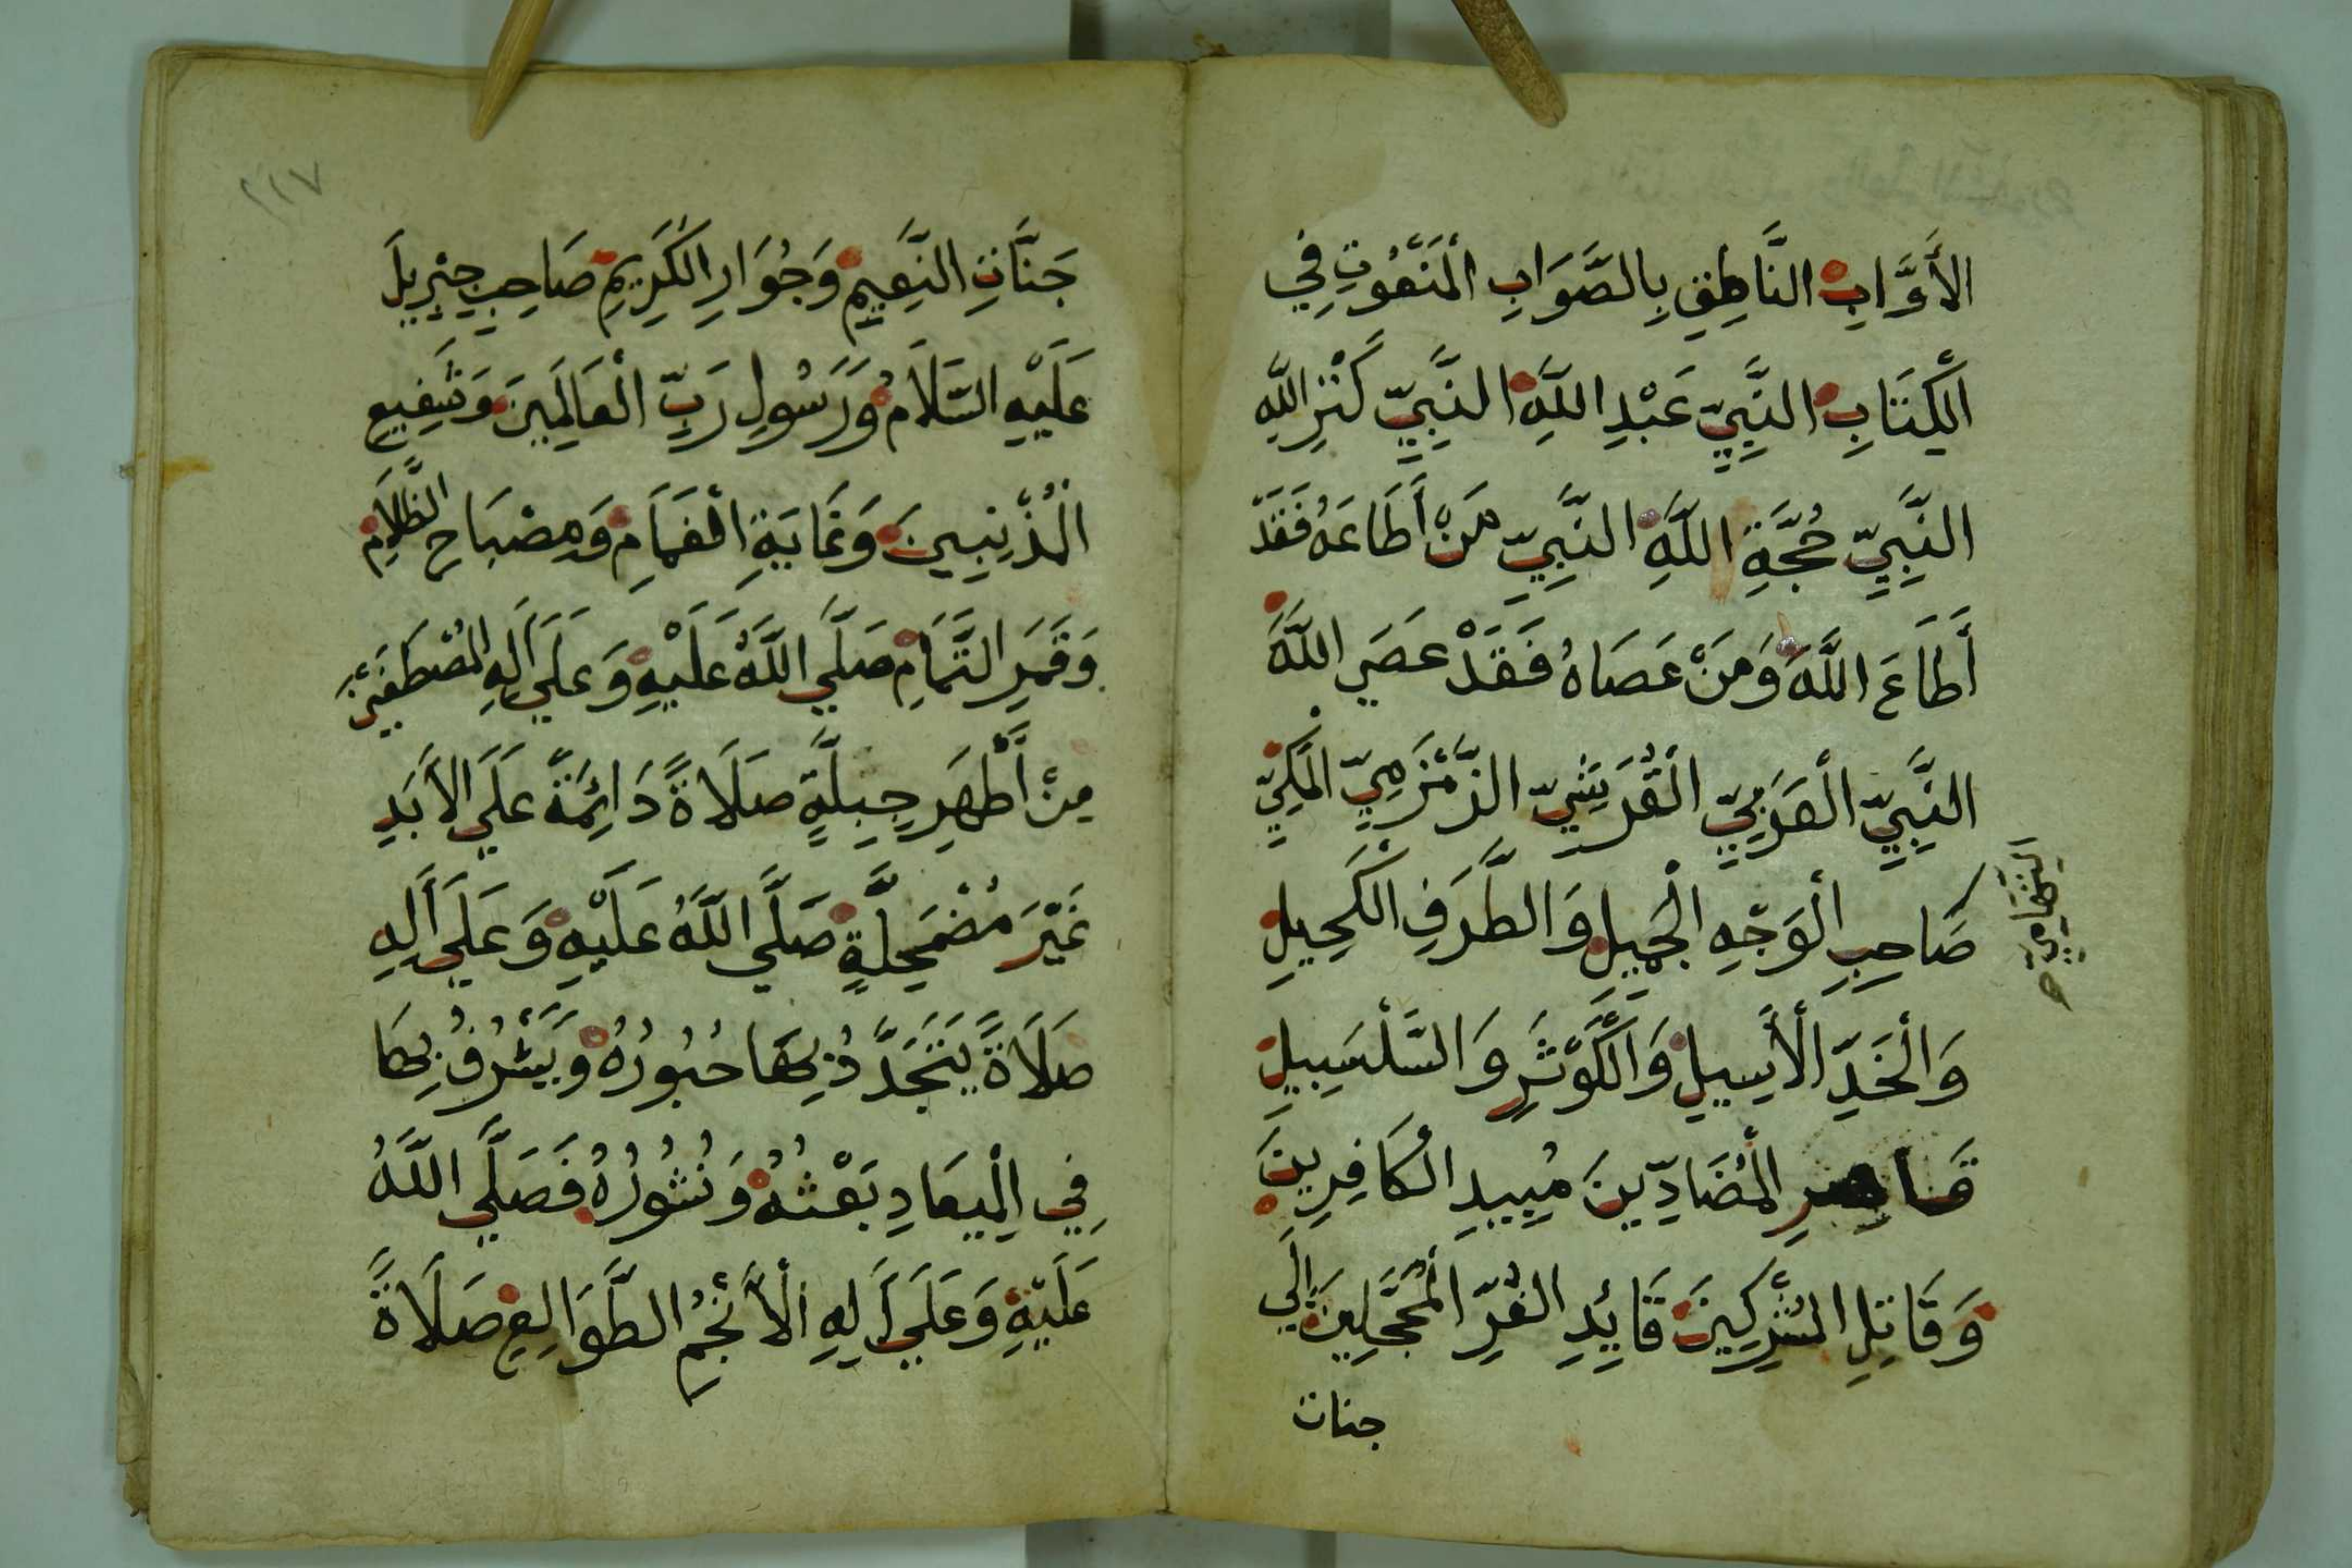 الأَوَّابِ النَّاطِقِ بِالصَّوَابِ الْمَنْعُوتِ فِي
الْكِتَابِ النَّبِيِّ عَبْدِ اللَّهِ النَّبِيِّ كَنْزِ اللَّهِ
النَّبِيِّ حُجَّةِ اللَّهِ النَّبِيِّ مَنْ أَطَاعَهُ فَقَدْ
أَطَاعَ اللَّهَ وَمَنْ عَصَاهُ فَقَدْ عَصَي اللَّهَ
النَّبِيِّ الْعَرَبِيِّ الْقُرَيْشِيِّ الزَّمْزَمِيِّ الْمَكِّيِّ
التِّهَامِيِّ صح
صَاحِبِ الْوَجْهِ الْجَمِيلِ وَالطَّرَفِ الْكَحِيلِ
وَالْخَدِّ الْأَسِيلِ وَالْكَوْثَرِ وَالسَّلْسَبِيلِ
قَاهِرِ الْمُضَادِّينَ مُبِيدِ الْكَافِرِينَ
وَقَاتِلِ الْمُشْرِكِينَ قَائِدِ الْغُرِّ الْمُحَجَّلِينَ إِلَي
جنات
٢١٧
جَنَّاتِ النَّعِيمِ وَجُوَارِ الْكَرِيمِ صَاحِبِ جِبْرِيلَ
عَلَيْهِ السَّلَامُ وَرَسُولِ رَبِّ الْعَالَمِينَ وَشَفِيعِ
الْمُذْنِبِينَ وَغَايَةِ الْغَمَامِ وَمِصْبَاحِ الظَّلَامِ
وَقَمَرِ التَّمَامِ صَلَّي اللَّهُ عَلَيْهِ وَعَلَي آلِهِ الْمُصْطَفَيْنَ
مِنْ أَطْهَرِ جِبِلَّةٍ صَلَاةً دَائِمَةً عَلَي الْأَبَدِ
غَيْرَ مُضْمَحِلَّةٍ صَلَّي اللَّهُ عَلَيْهِ وَعَلَي آلِهِ
صَلَاةً يَتَجَدَّدُ بِهَا حُبُورُهُ وَيَشْرُفُ بِهَا
فِي الْمِيعَادِ بَعْثُهُ وَنُشُورُهُ فَصَلَّي اللَّهُ
عَلَيْهِ وَعَلَي آلِهِ الْأَنْجُمِ الطَّوَالِعِ صَلَاةً